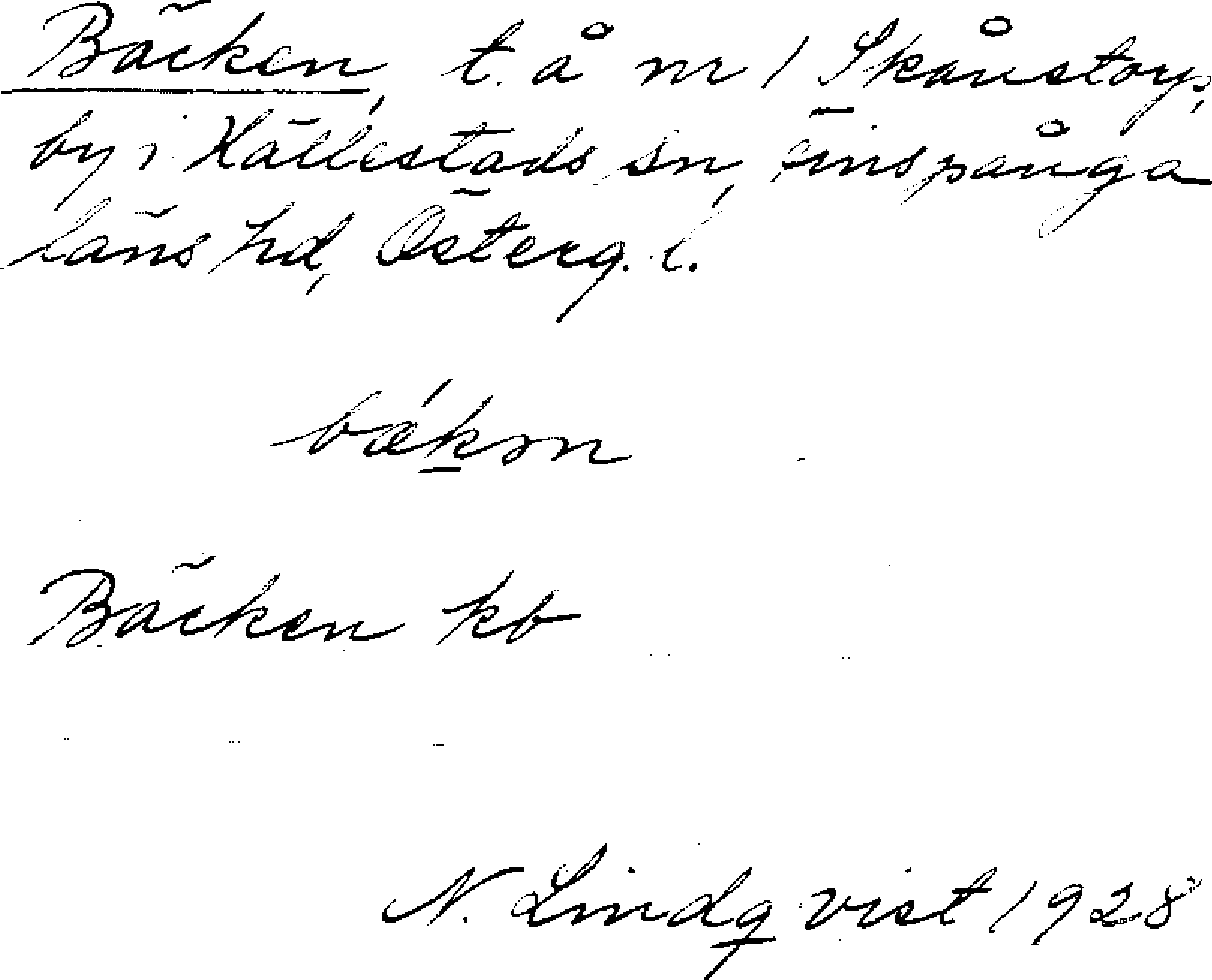 Bäcken, t. å nr 1 Skånstorp,
by i Hällestads sn, Finspånga
läns hd, Österg. l.
bǽkən
Bäcken kb
N. Lindqvist 1928